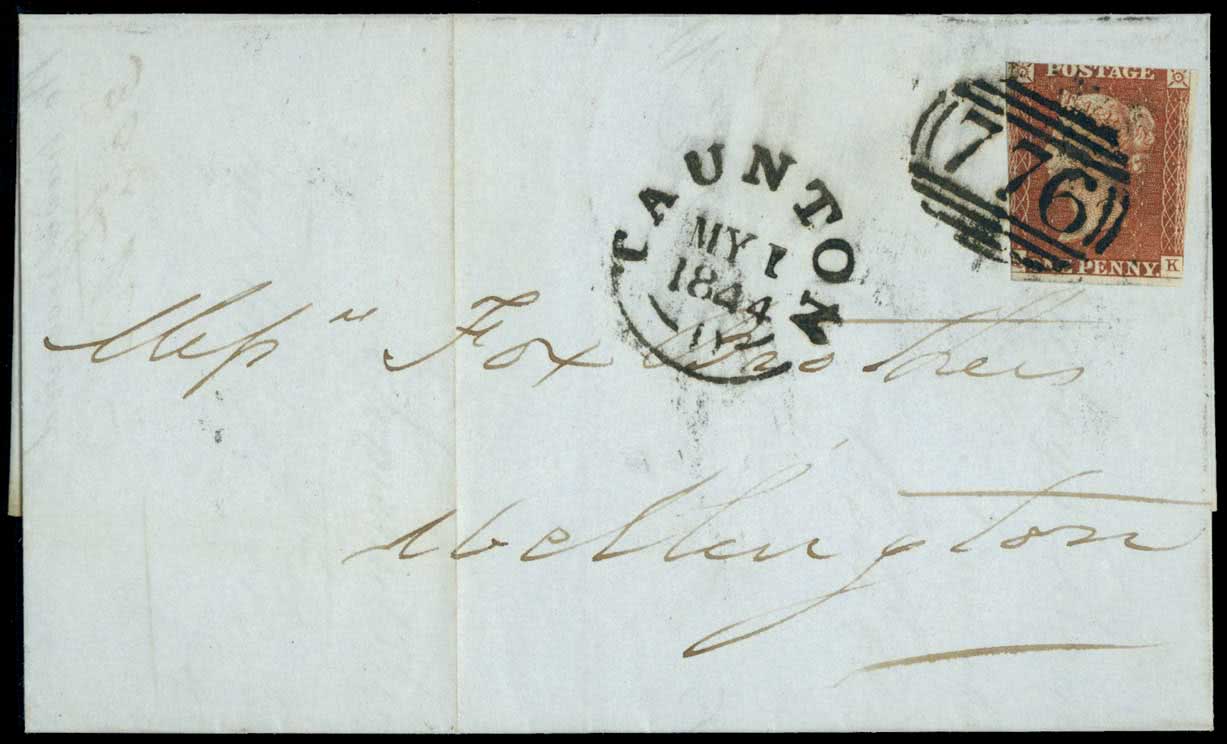 POSTAGE
776
PENNY
K
TAUNTON
MY 1
1844
Messrs Fox Brothers
Wellington